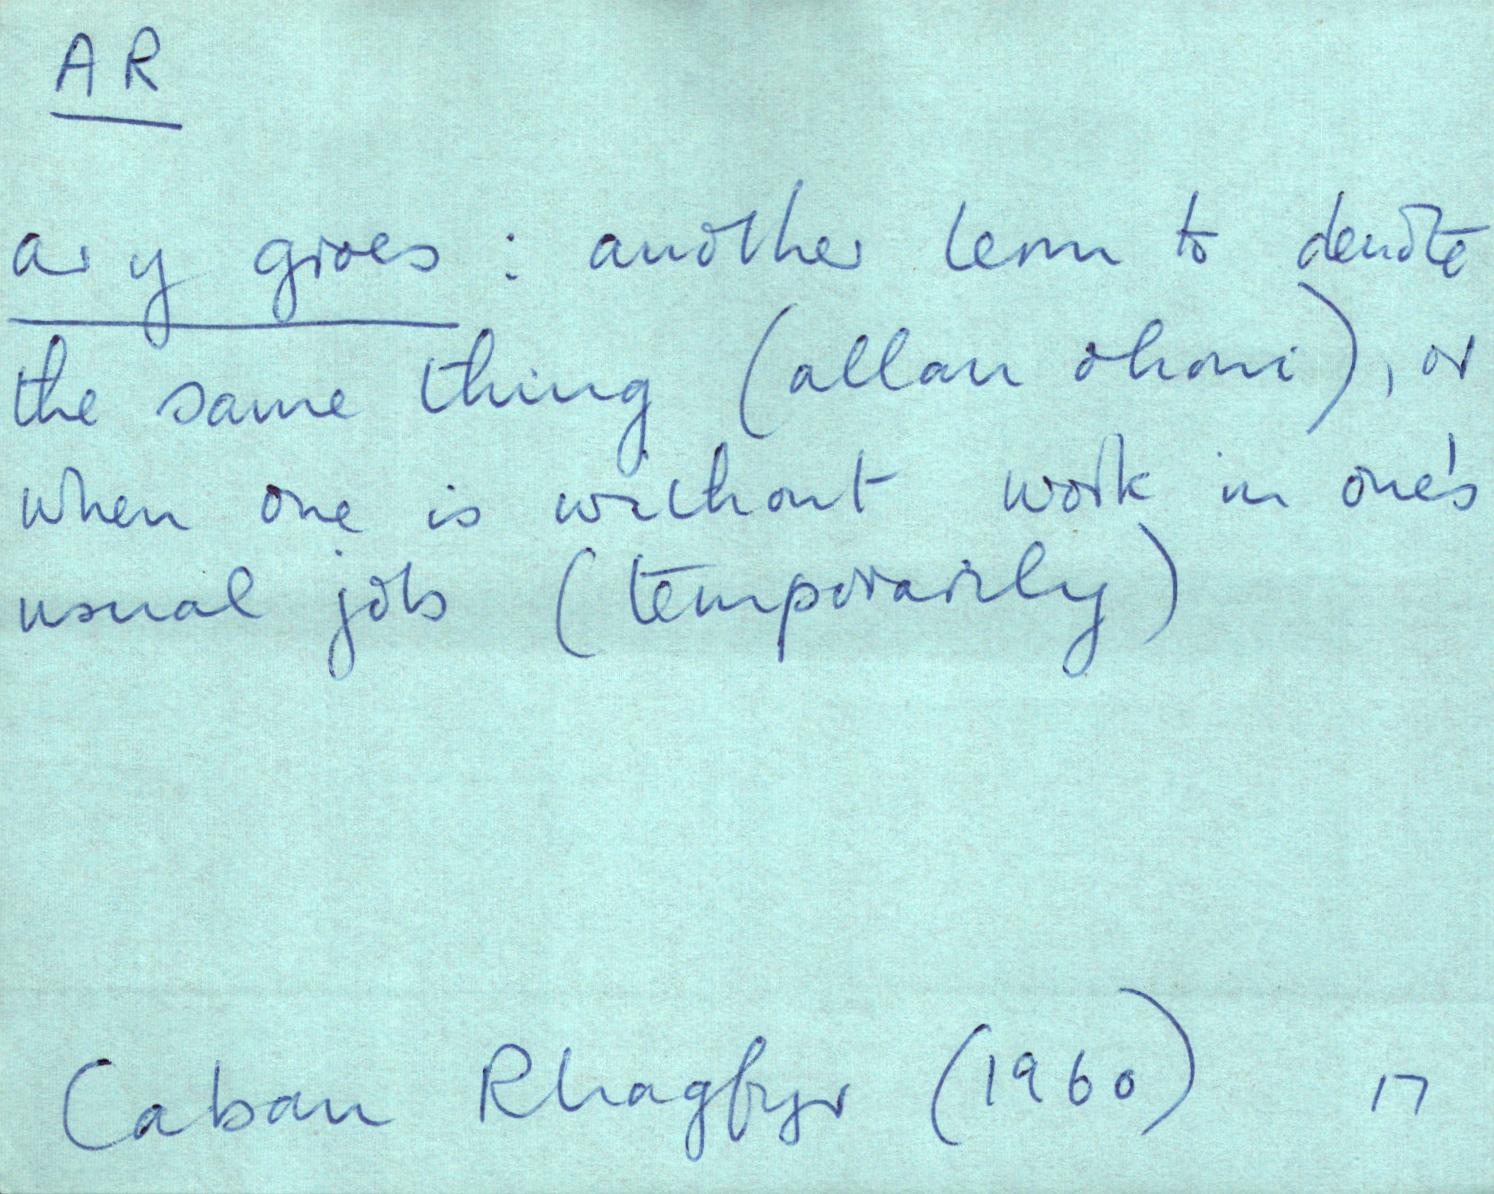 AR
ar y groes : another term to denote
the same thing (allan ohoni), or
when one is without work in one's
usual job (temporarily)
Caban Rhagfyr (1960) 17